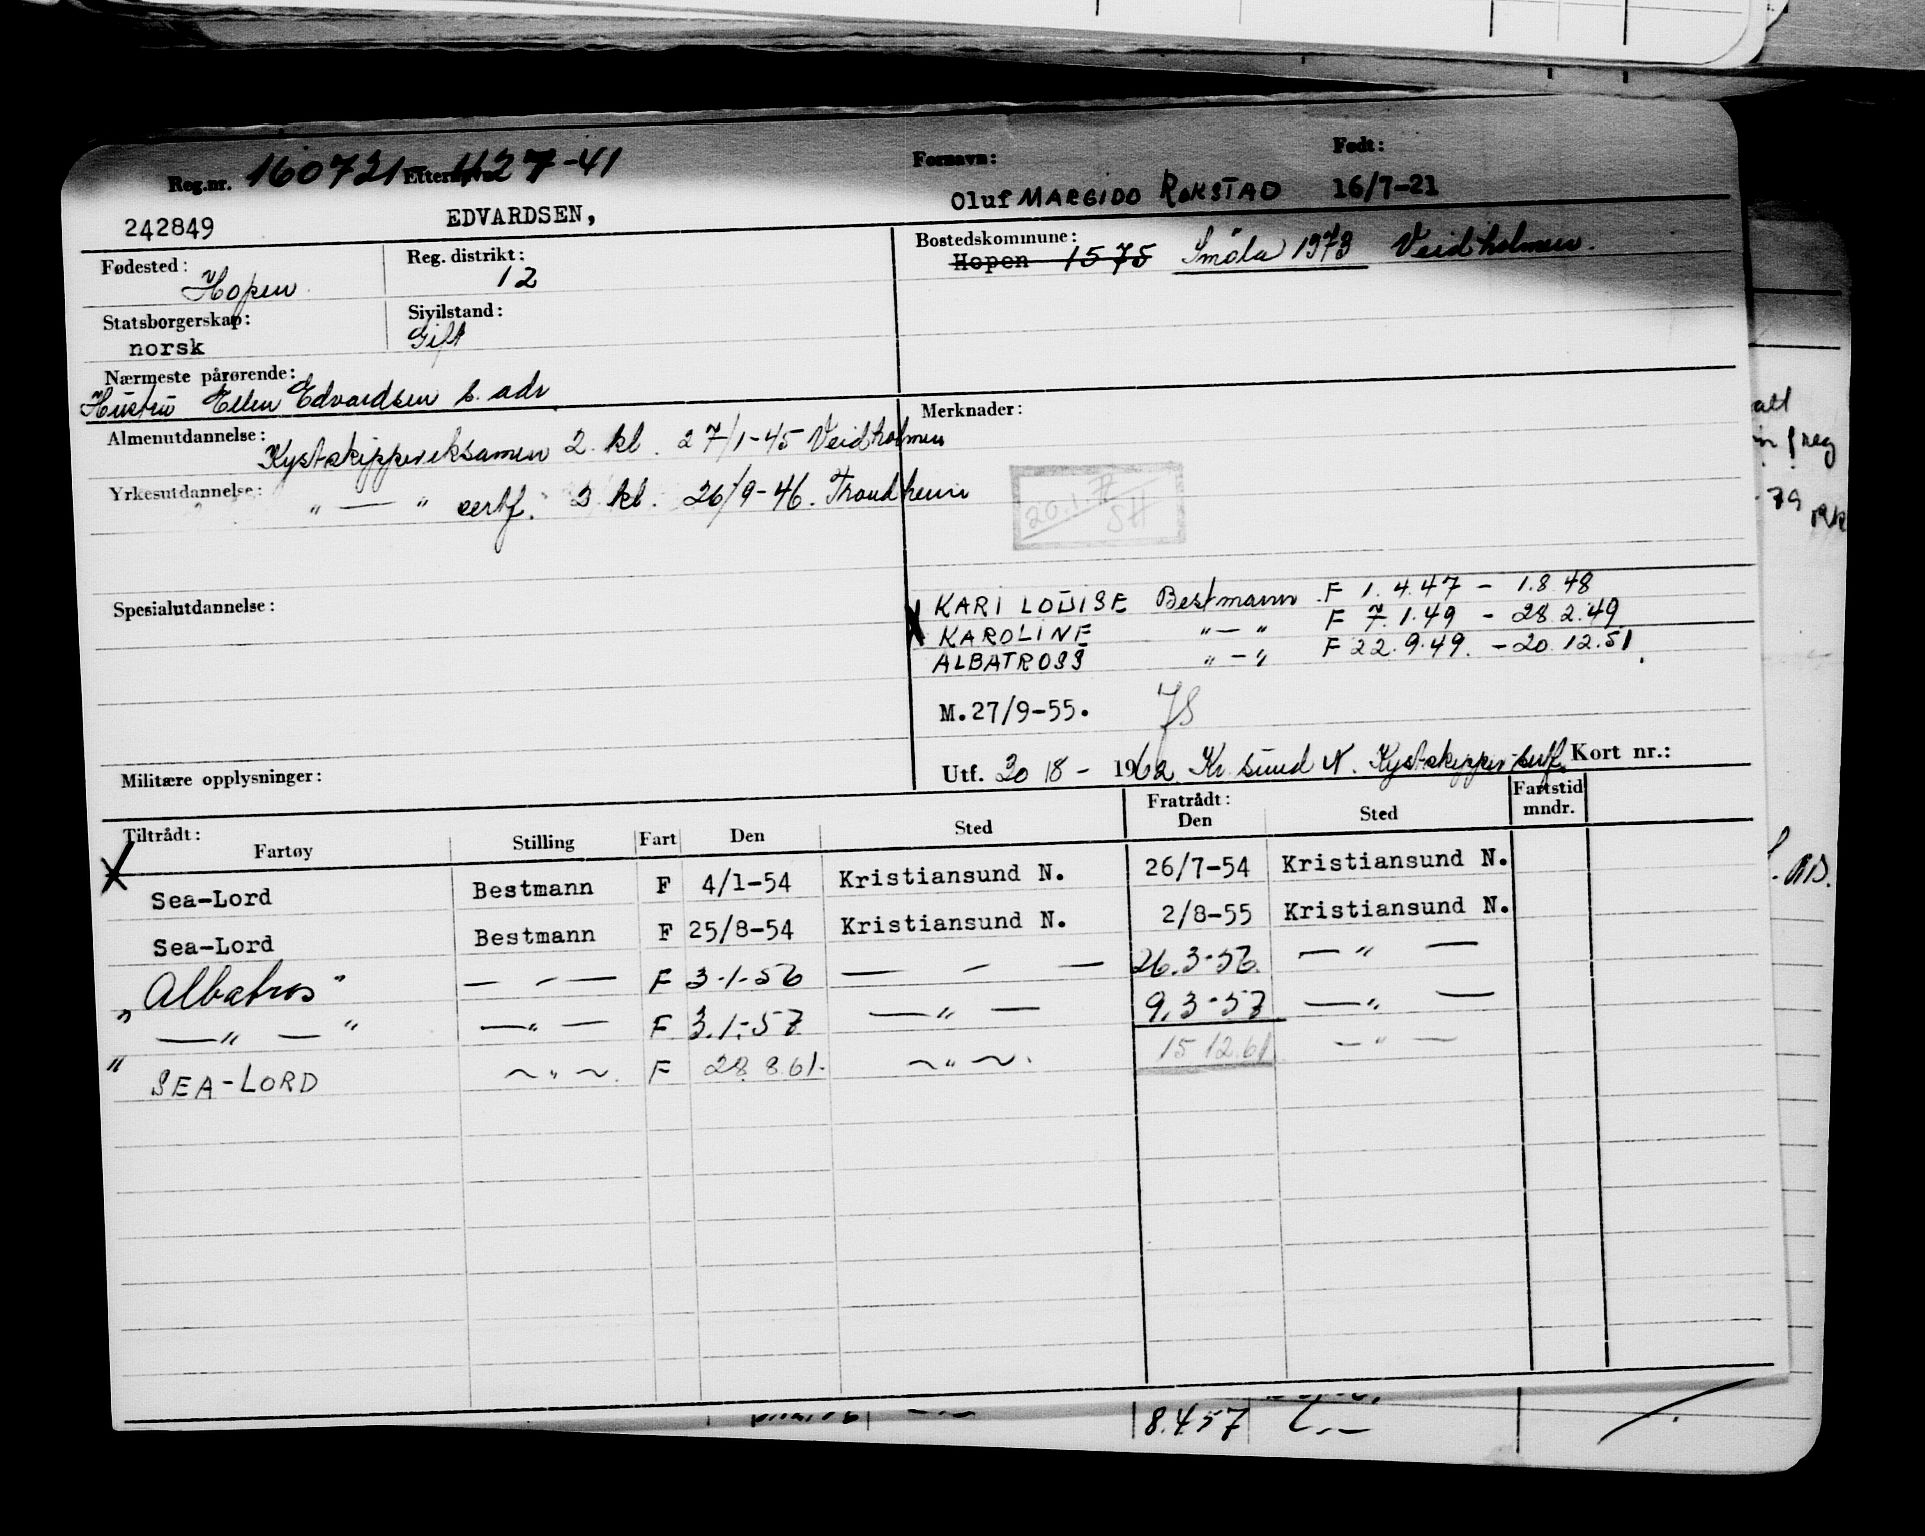 Reg.nr. 160721 - 427-41 Fornavn: Født:
242849 EDVARDSEN, Oluf MARGIDO ROKSTAD 16/7-21
Fødested: Hopen Reg. distrikt: 12 Bostedskommune: Hopen 1575 Smöla 1573 Veidholmen.
Statsborgerskap: norsk Sivilstand: Gift
Nærmeste pårørende:
Hustru Ellen Edvardsen s. adr.
Almenutdannelse: Kystskippereksamen 2. kl. 27/1-45 Veidholmen
Merknader:
Yrkesutdannelse: " — " certf. 2 kl. 26/9-46. Trondheim
20.1.
SH
Spesialutdannelse:
KARI LOUISE Bestmann F 1.4.47 - 1.8.48
KAROLINE "—" F 7.1.49 - 28.2.49
ALBATROSS "—" F 22.9.49. - 20.12.51.
M.27/9-55.
Militære opplysninger:
Utf. 20/8 - 1962 Kr. sund N. Kystskipper sertf. Kort nr.:
Tiltrådt: Fartøy Stilling Fart Den Sted Fratrådt: Den Sted Fartstid mndr.
Sea-Lord Bestmann F 4/1-54 Kristiansund N. 26/7-54 Kristiansund N.
Sea-Lord Bestmann F 25/8-54 Kristiansund N. 2/8-55 Kristiansund N.
"Albatros" — " — F 3-1-56 — " — 26.3-56. — " —
— " — " — " — F 3.1.-57 — " — 9.3-57 — " —
" SEA-LORD ~ " ~. F 28.8.61. ~ " ~. 15.12.61. — " —
8.457